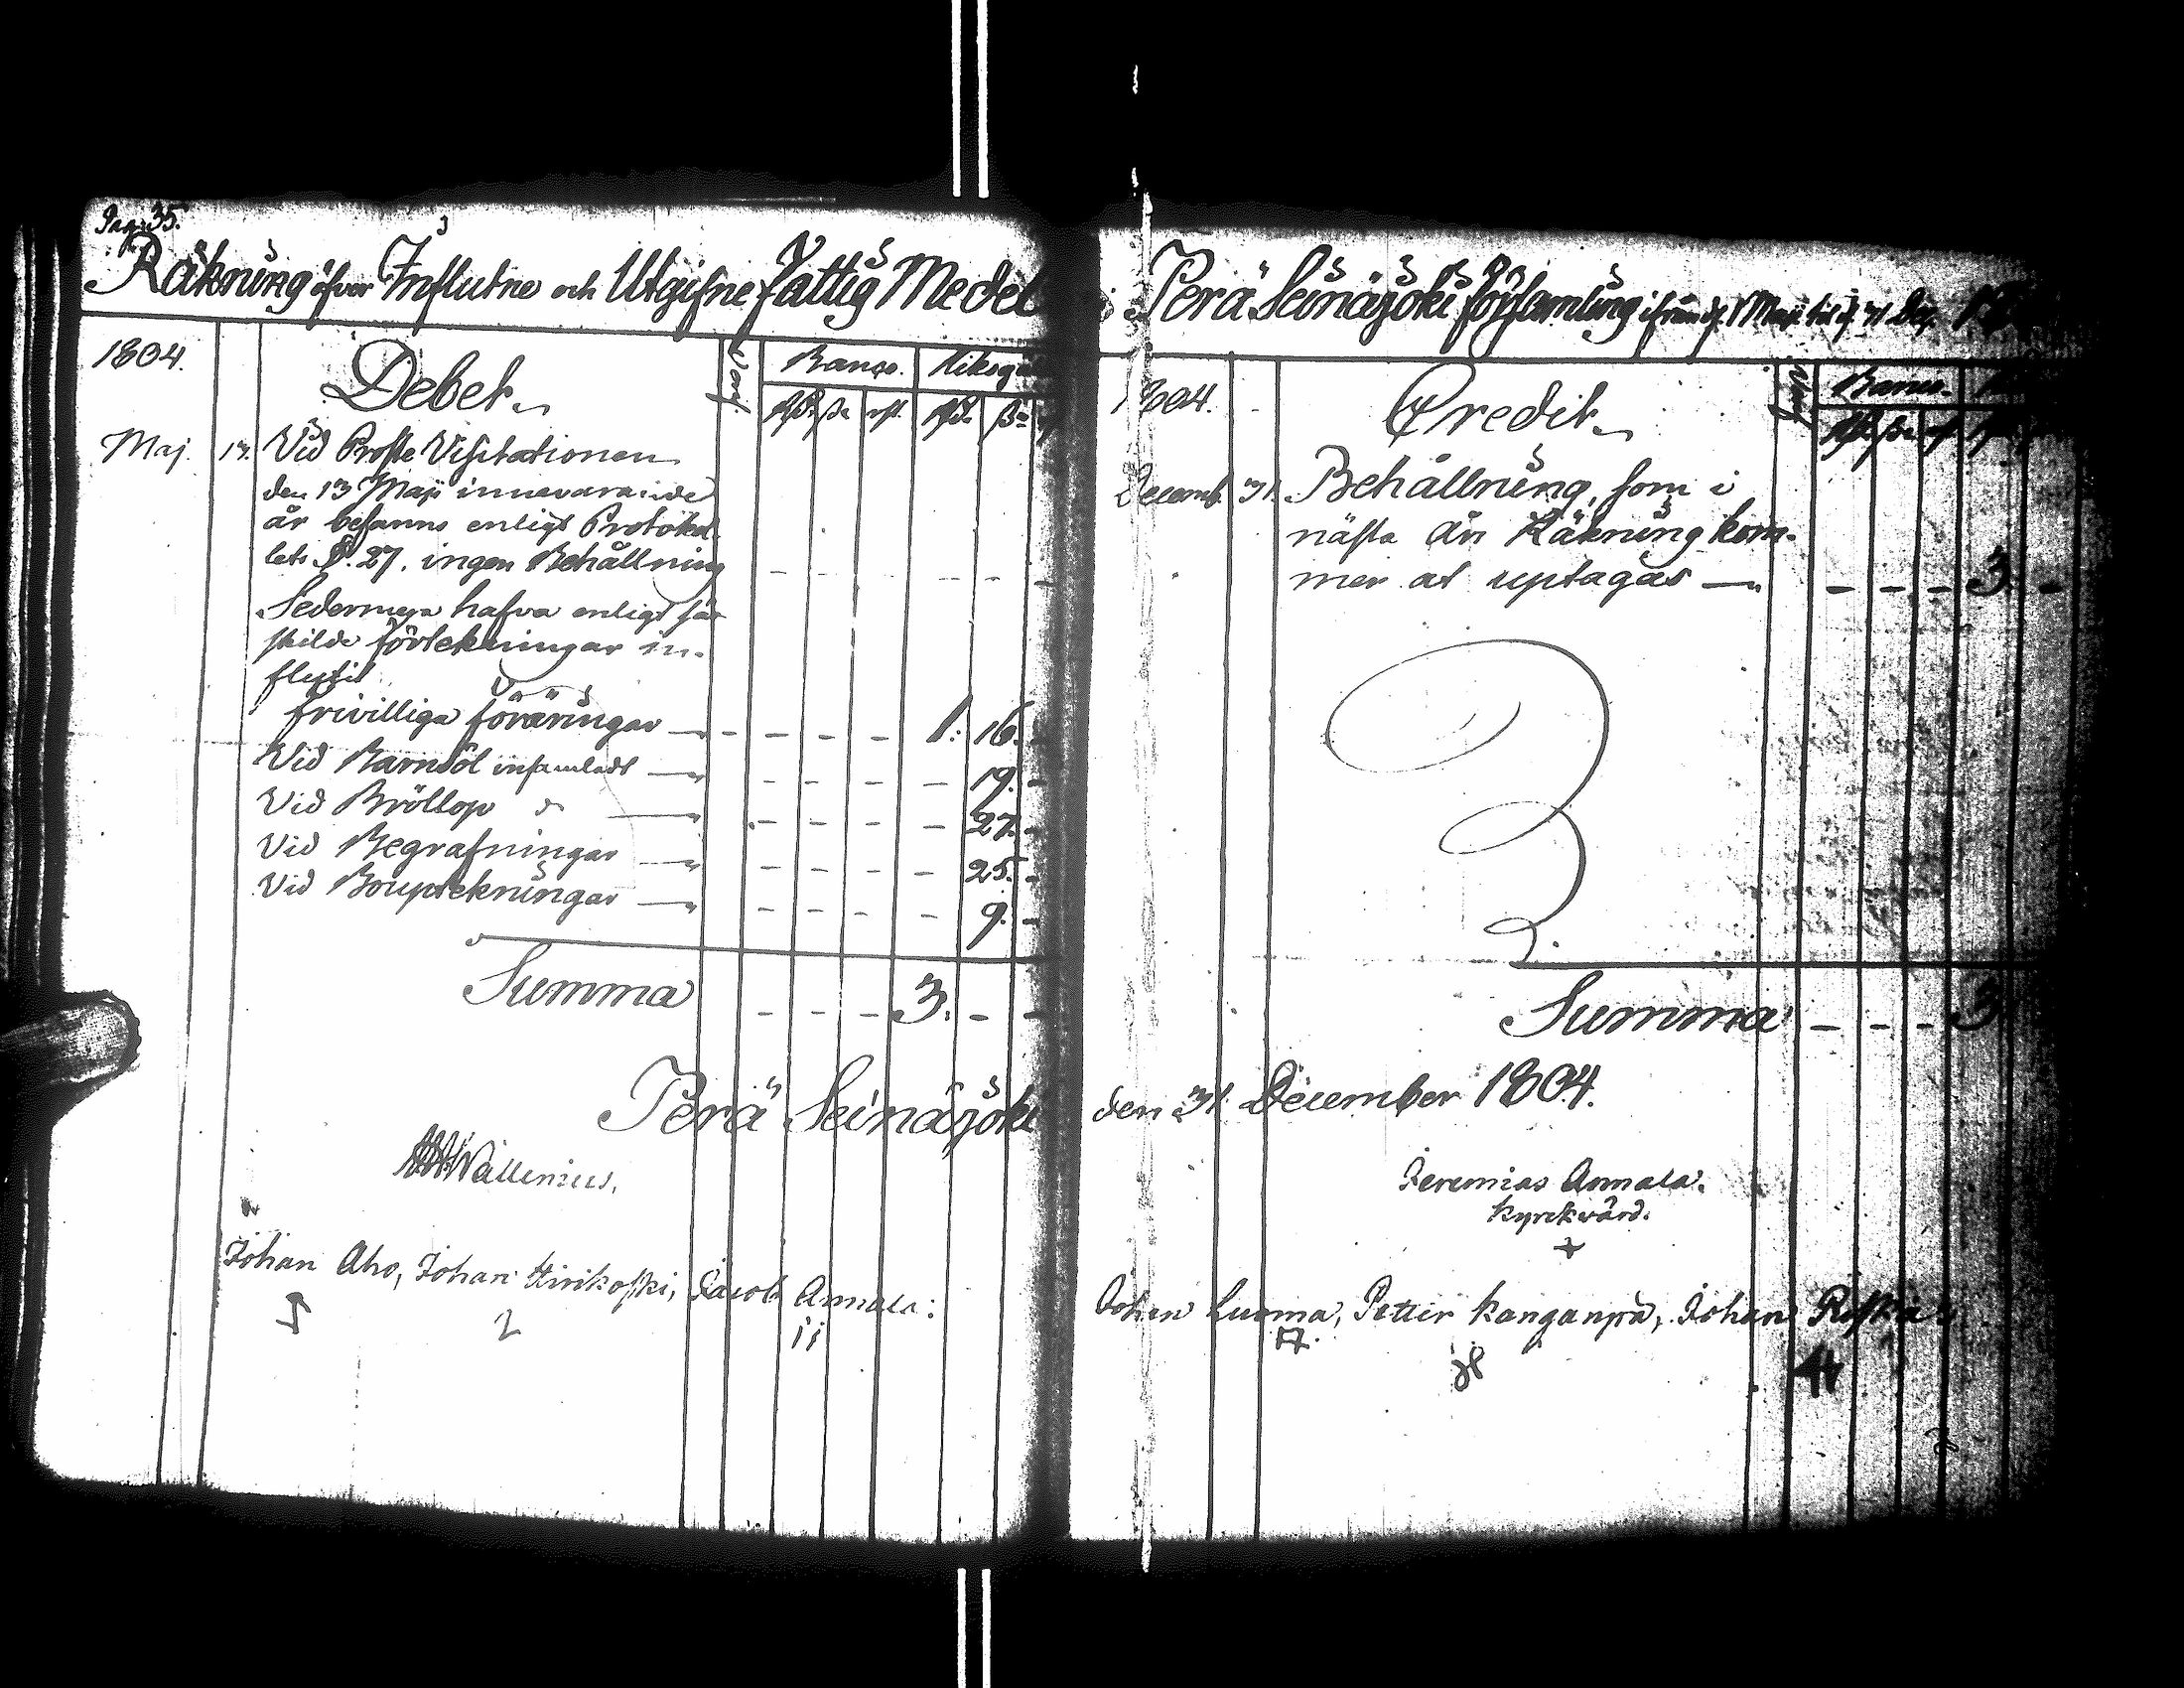 Pag: 35.
Räkning öfver Influtne och Utgifne Fattig Medel i Perä Seinäjoki församling ifrån d. 1 Maji til d. 31 Dec.
1804.
Debet
Banco. Riksg
Maj. 13. Vid Proste Visitationen
den 13 Maji innevarande
år befanns enligt Protokol
lets §. 27. ingen Behållning - - - - - -
Sedermera hafva enligt sär
skilde förtekningar in-
flutit
frivilliga föräringar - - - - 1: 16. -
Vid Barnsöl insamladt - - - - 19. -
Vid Bröllop do - - - - 27. -
Vid Begrafningar - - - - 25. -
Vid Bouptekningar - - - - 9. -
Summa - - - 3. - -
1804.
Credit
Banco
Decemb. 31. Behållning, som i
nästa års Räkning kom-
mer at uptagas - - - 3. -
Summa - - - 3
Perä Seinäjoki den 31 December 1804.
Wallenius.
Jeremias Annala.
Kyrckvärd.
Johan Aho, Johan Hirikoski, Jacob Annala:
Johan Luoma, Petter Kanganpä, Johan